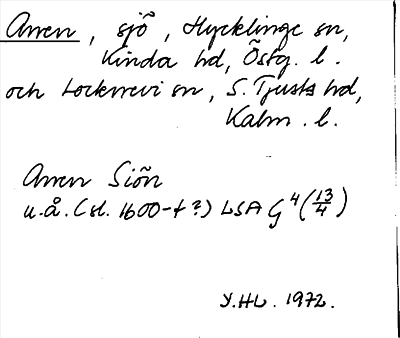 Ånen, sjö, Hycklinge sn,
Kinda hd, Östg. l.
och Locknevi sn, S. Tjusts hd,
Kalm. l.
Ånen Siön
u.å. (sl. 1600-t?) LSA G 4 (13/4)
Y.HL. 1972.